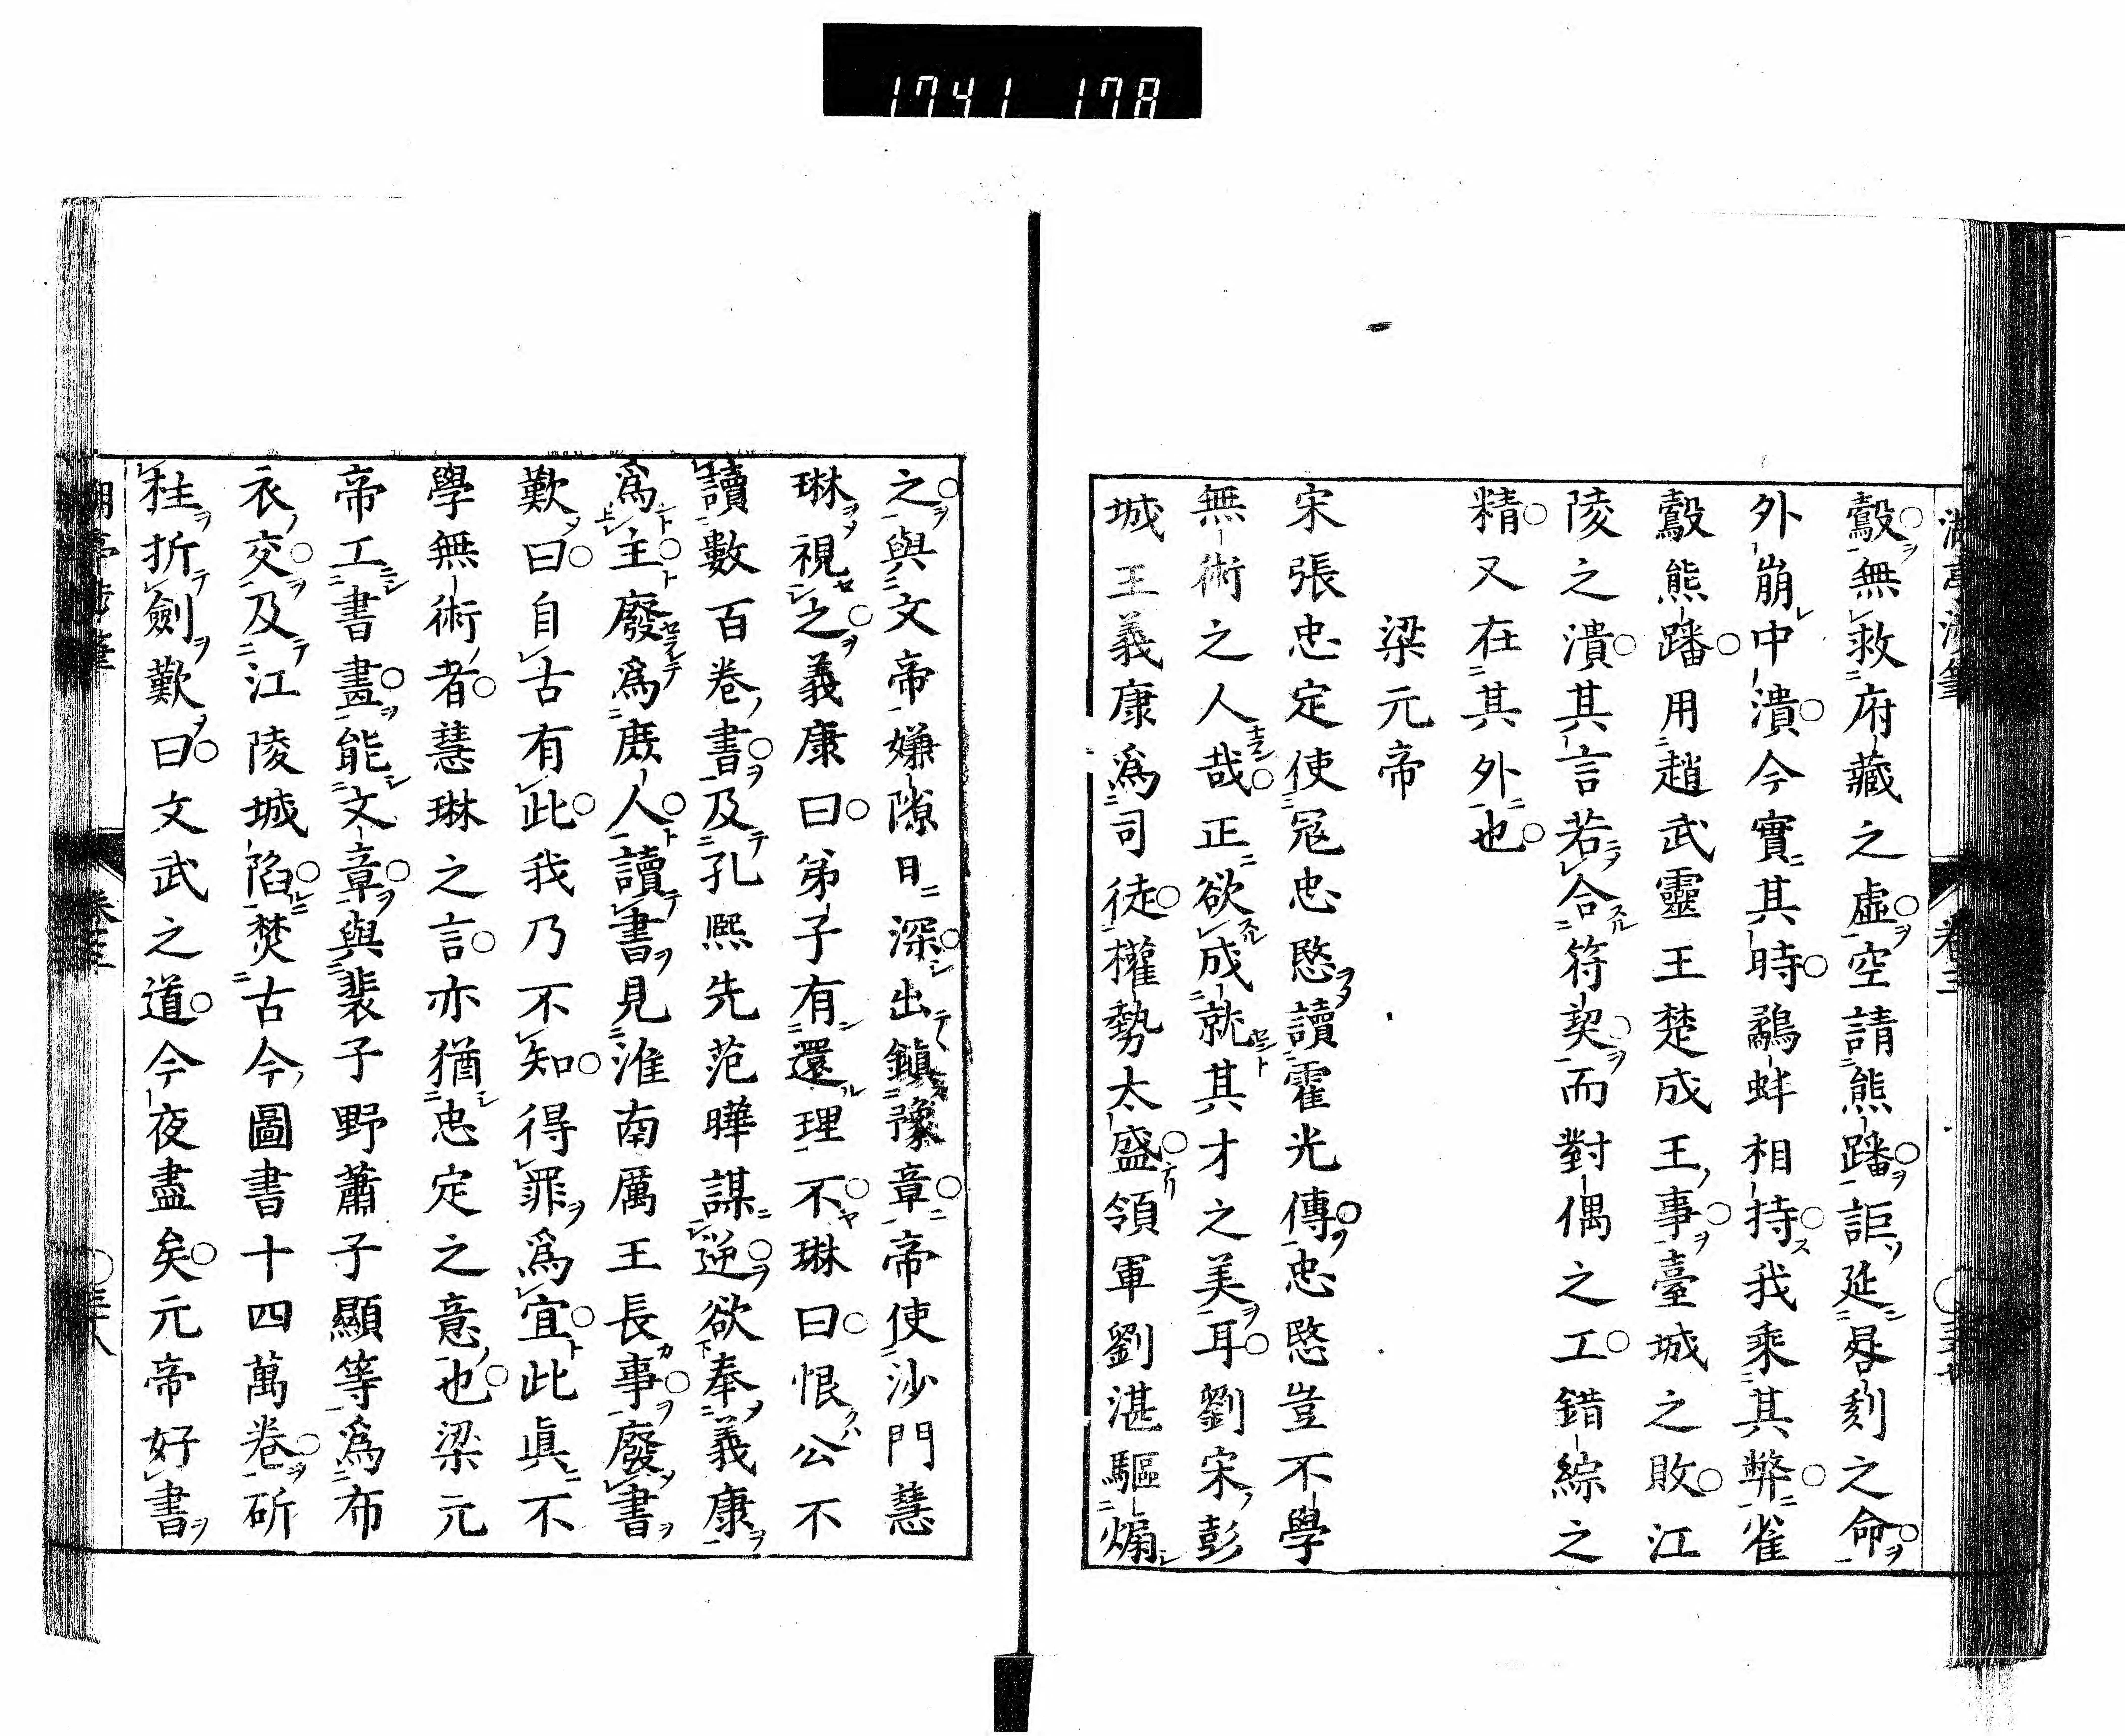 1741 178
鷇無救府藏之虛空請熊蹯詎延晷刻之命
外崩中潰今實其時鷸蚌相持我乘其弊雀
鷇熊蹯用趙武靈王楚成王事臺城之敗江
陵之潰其言若合符契而對偶之工錯綜之
精又在其外也
梁元帝
宋張忠定使冦忠愍讀霍光傳忠愍豈不學
無術之人哉正欲成就其才之美耳劉宋彭
城王義康爲司徒權勢太盛領軍劉湛驅煽
之與文帝嫌隙日深出鎮豫章帝使沙門慧
琳視之義康曰弟子有還理不琳曰恨公不
讀數百卷書及孔熙先范曄謀逆欲奉義康
爲主廢爲庶人讀書見淮南厲王長事廢書
歎曰自古有此我乃不知得罪爲宜此眞不
學無術者慧琳之言亦猶忠定之意也梁元
帝工書畫能文章與裴子野蕭子顯等爲布
衣交及江陵城陷焚古今圖書十四萬卷斫
柱折劍歎曰文武之道今夜盡矣元帝好書
卷三